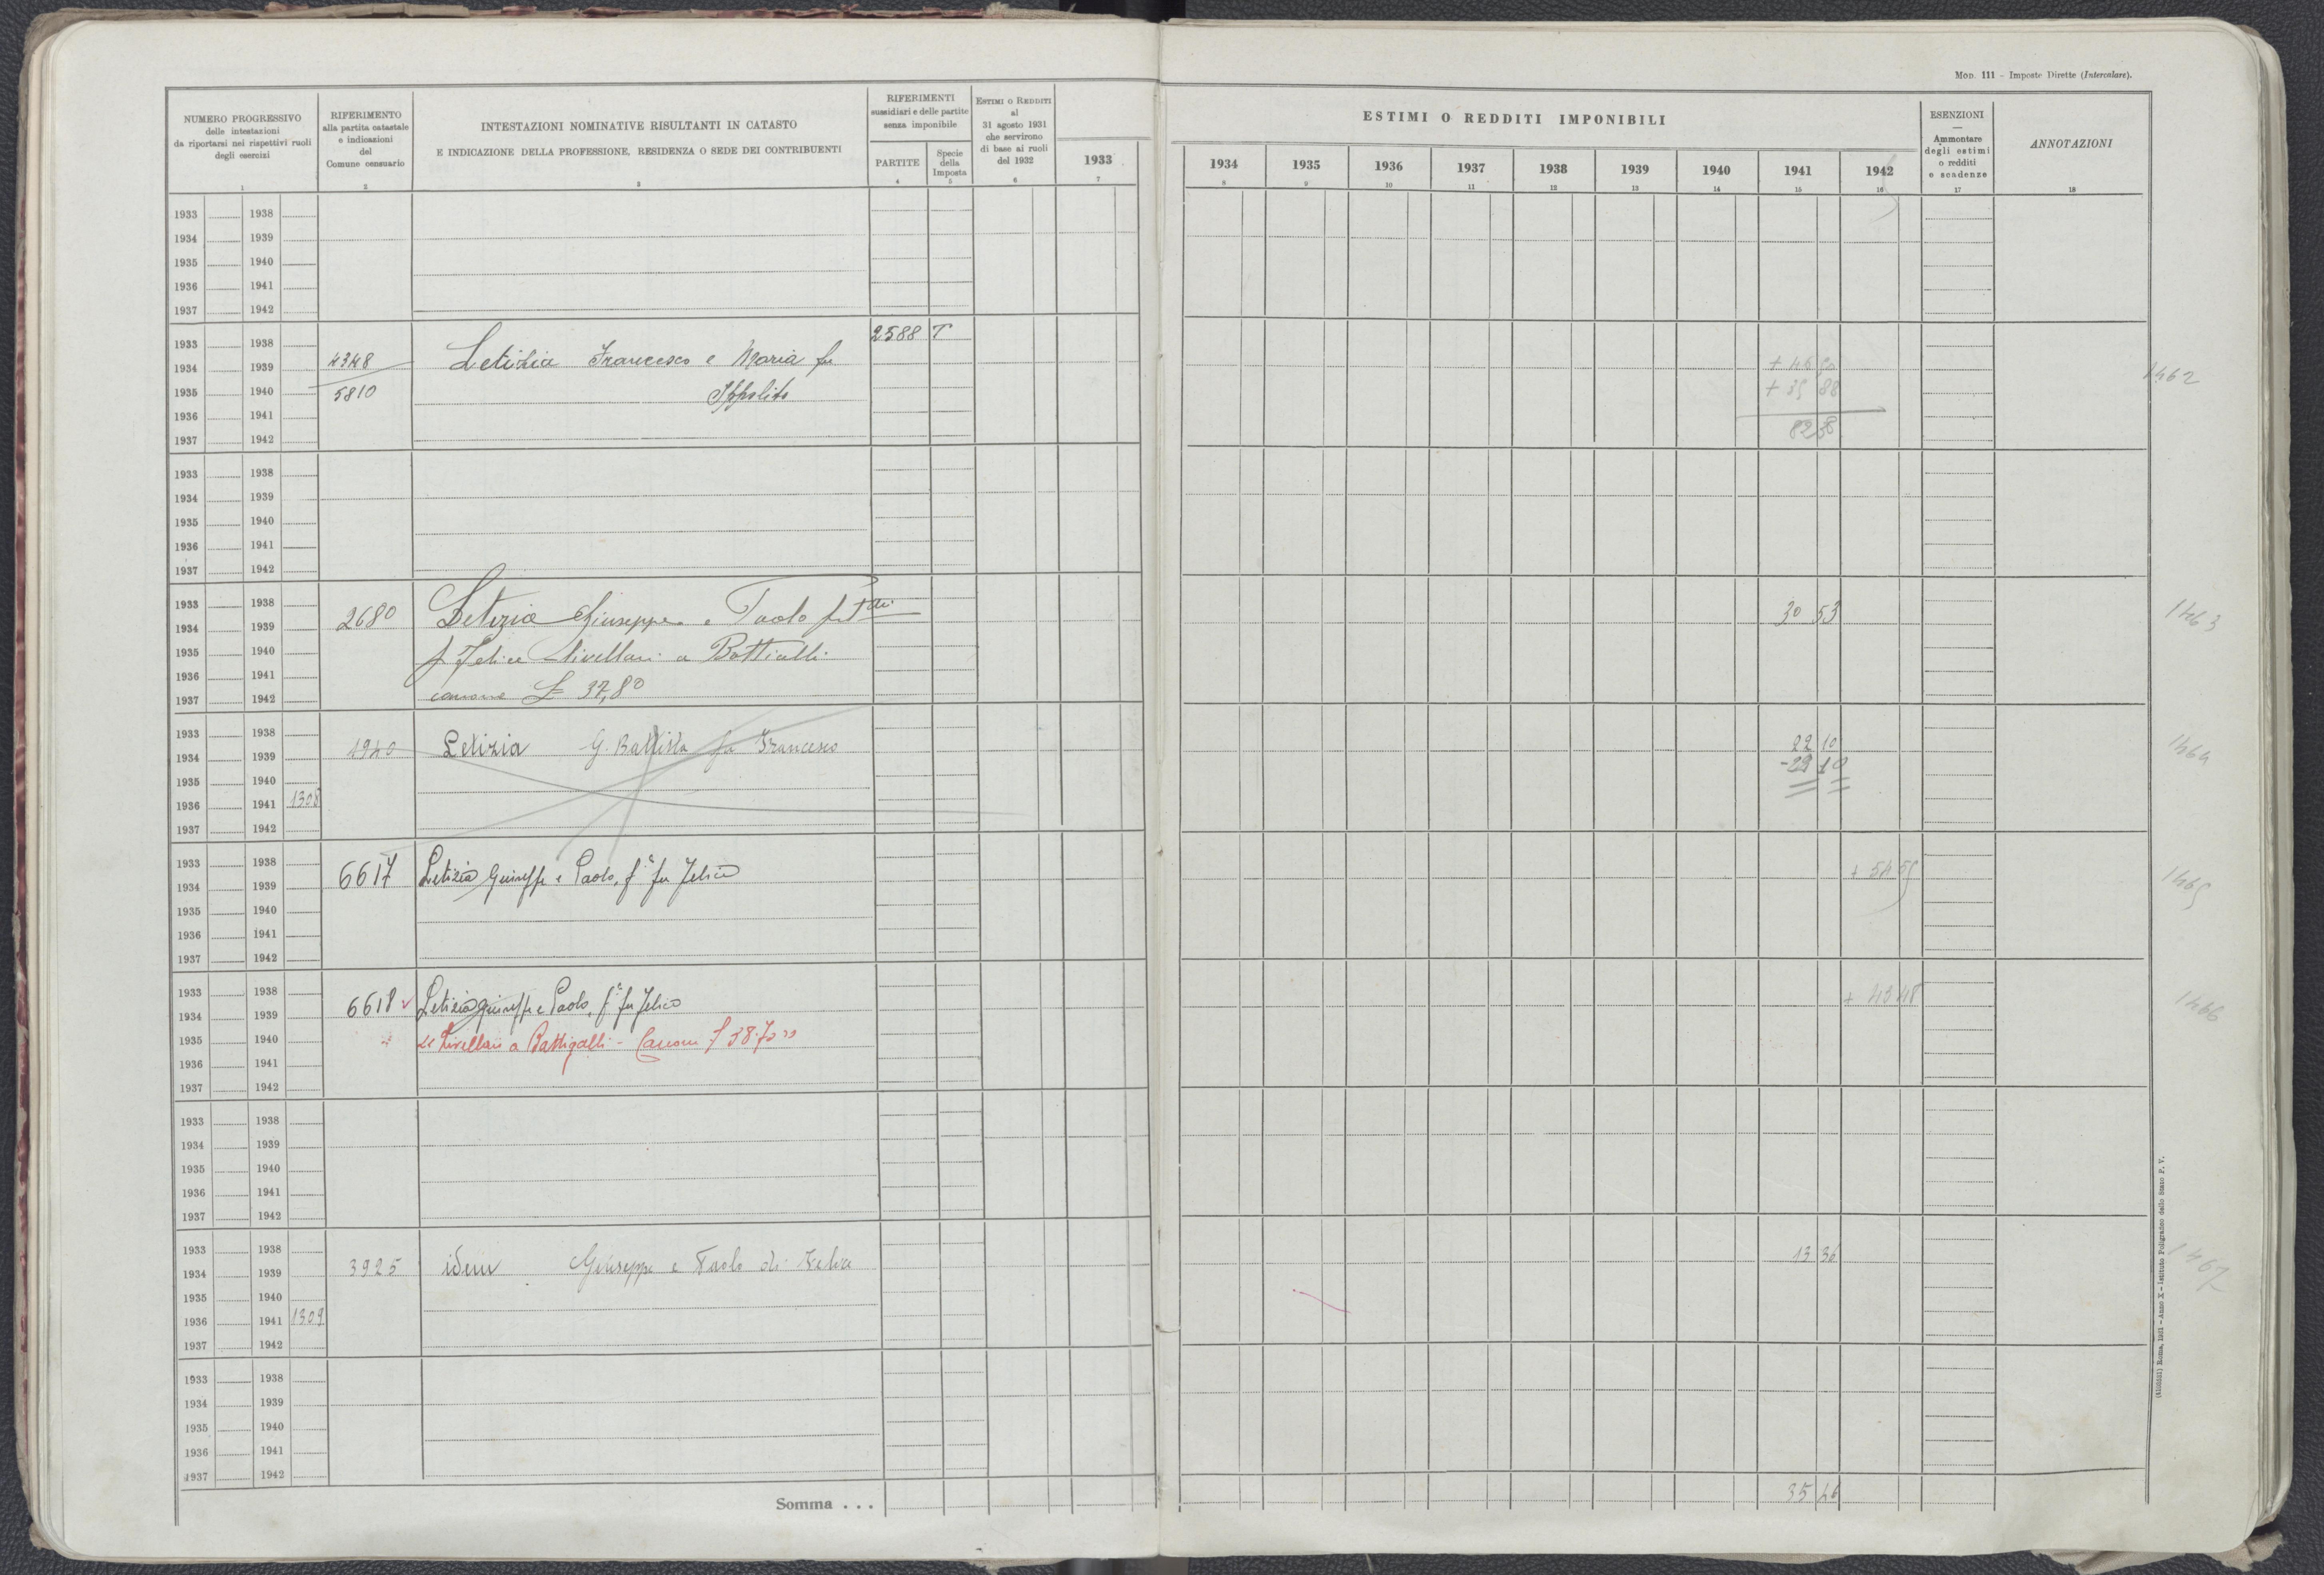 MOD. 111 – Imposte Dirette (Intercalare).
NUMERO PROGRESSIVO
delle intestazioni
da riportarsi nei rispettivi ruoli
degli esercizi
1
RIFERIMENTO
alla partita catastale
e indicazioni
del
Comune censuario
2
INTESTAZIONI NOMINATIVE RISULTANTI IN CATASTO
E INDICAZIONE DELLA PROFESSIONE, RESIDENZA O SEDE DEI CONTRIBUENTI
3
RIFERIMENTI
sussidiari e delle partite
senza imponibile
PARTITE
4
Specie
della
Imposta
5
ESTIMI O REDDITI
al
31 agosto 1931
che servirono
di base ai ruoli
del 1932
6
1933
7
ESTIMI O REDDITI IMPONIBILI
1934 1935 1936 1937 1938 1939 1940 1941 1942
8 9 10 11 12 13 14 15 16
ESENZIONI
—
Ammontare
degli estimi
o redditi
e scadenze
17
ANNOTAZIONI
18
1933 1938
1934 1939
1935 1940
1936 1941
1937 1942
1933 1938 2588 T
1934 1939 4348 Letizia Francesco e Maria fu + 46 50 1462
1935 1940 5810 Ippolito + 35 88
1936 1941
1937 1942 82 38
1933 1938
1934 1939
1935 1940
1936 1941
1937 1942
1933 1938
1934 1939 2680 Letizia Giuseppe e Paolo 30 53 1463
1935 1940 f Felice livellari a
1936 1941
1937 1942 canone £ 37,80
1933 1938
1934 1939 4940 Letizia G. Battista fu Francesco 22 10 1464
1935 1940 - 22 10
1936 1941 1308
1937 1942
1933 1938
1934 1939 6617 Letizia Giuseppe e Paolo, f.i fu Felice + 54 05 1465
1935 1940
1936 1941
1937 1942
1933 1938
1934 1939 6618 Letizia Giuseppe e Paolo, f.i fu Felice + 43 48 1466
1935 1940 Livellari a Battigalli - Canone
1936 1941
1937 1942
1933 1938
1934 1939
1935 1940
1936 1941
1937 1942
1933 1938
1934 1939 3925 idem Giuseppe e Paolo di Felice 13 36 1467
1935 1940
1936 1941 1309
1937 1942
1933 1938
1934 1939
1935 1940
1936 1941
1937 1942
Somma . . . 35 46
Roma, 1931 – Anno X – Istituto Poligrafico dello Stato P. V.